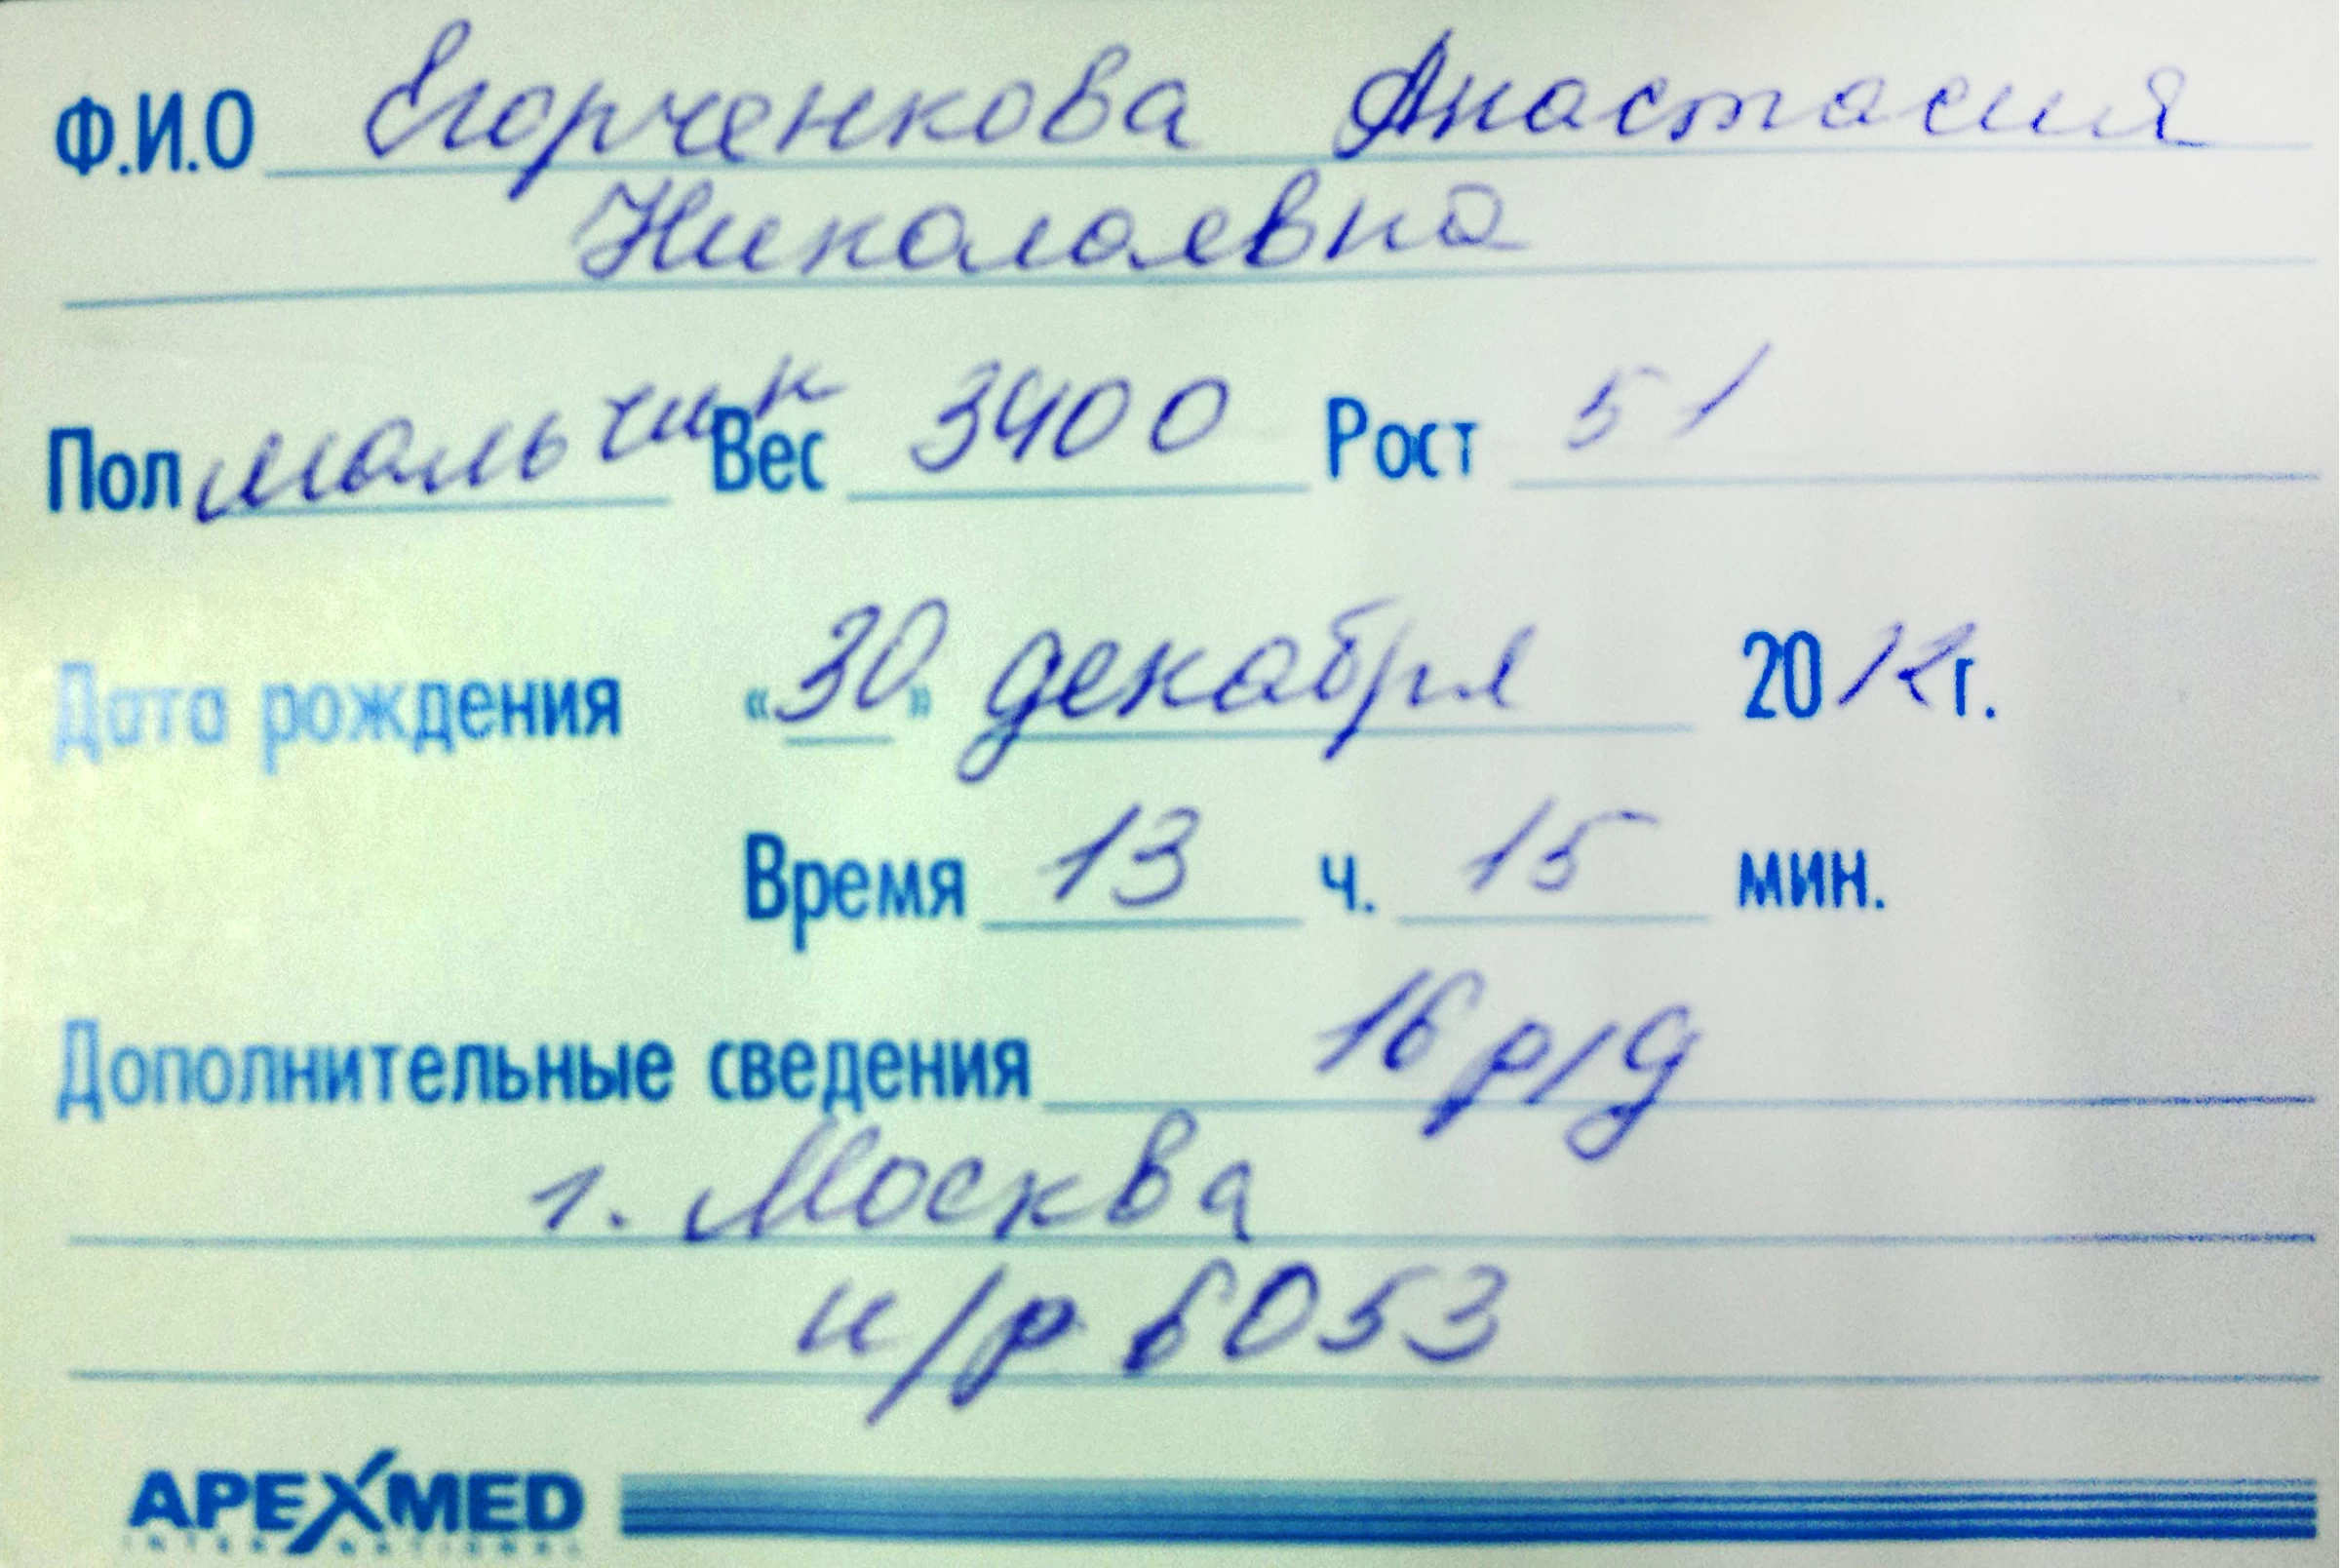 Ф.И.О Егорченкова Анастасия
Николаевна
Пол мальчик Вес 3400 Рост 51
Дата рождения «30» декабря 2012 г.
Время 13 ч. 15 мин.
Дополнительные сведения 16 р/д
г. Москва
и/р 6053
APEXMED
INTERNATIONAL